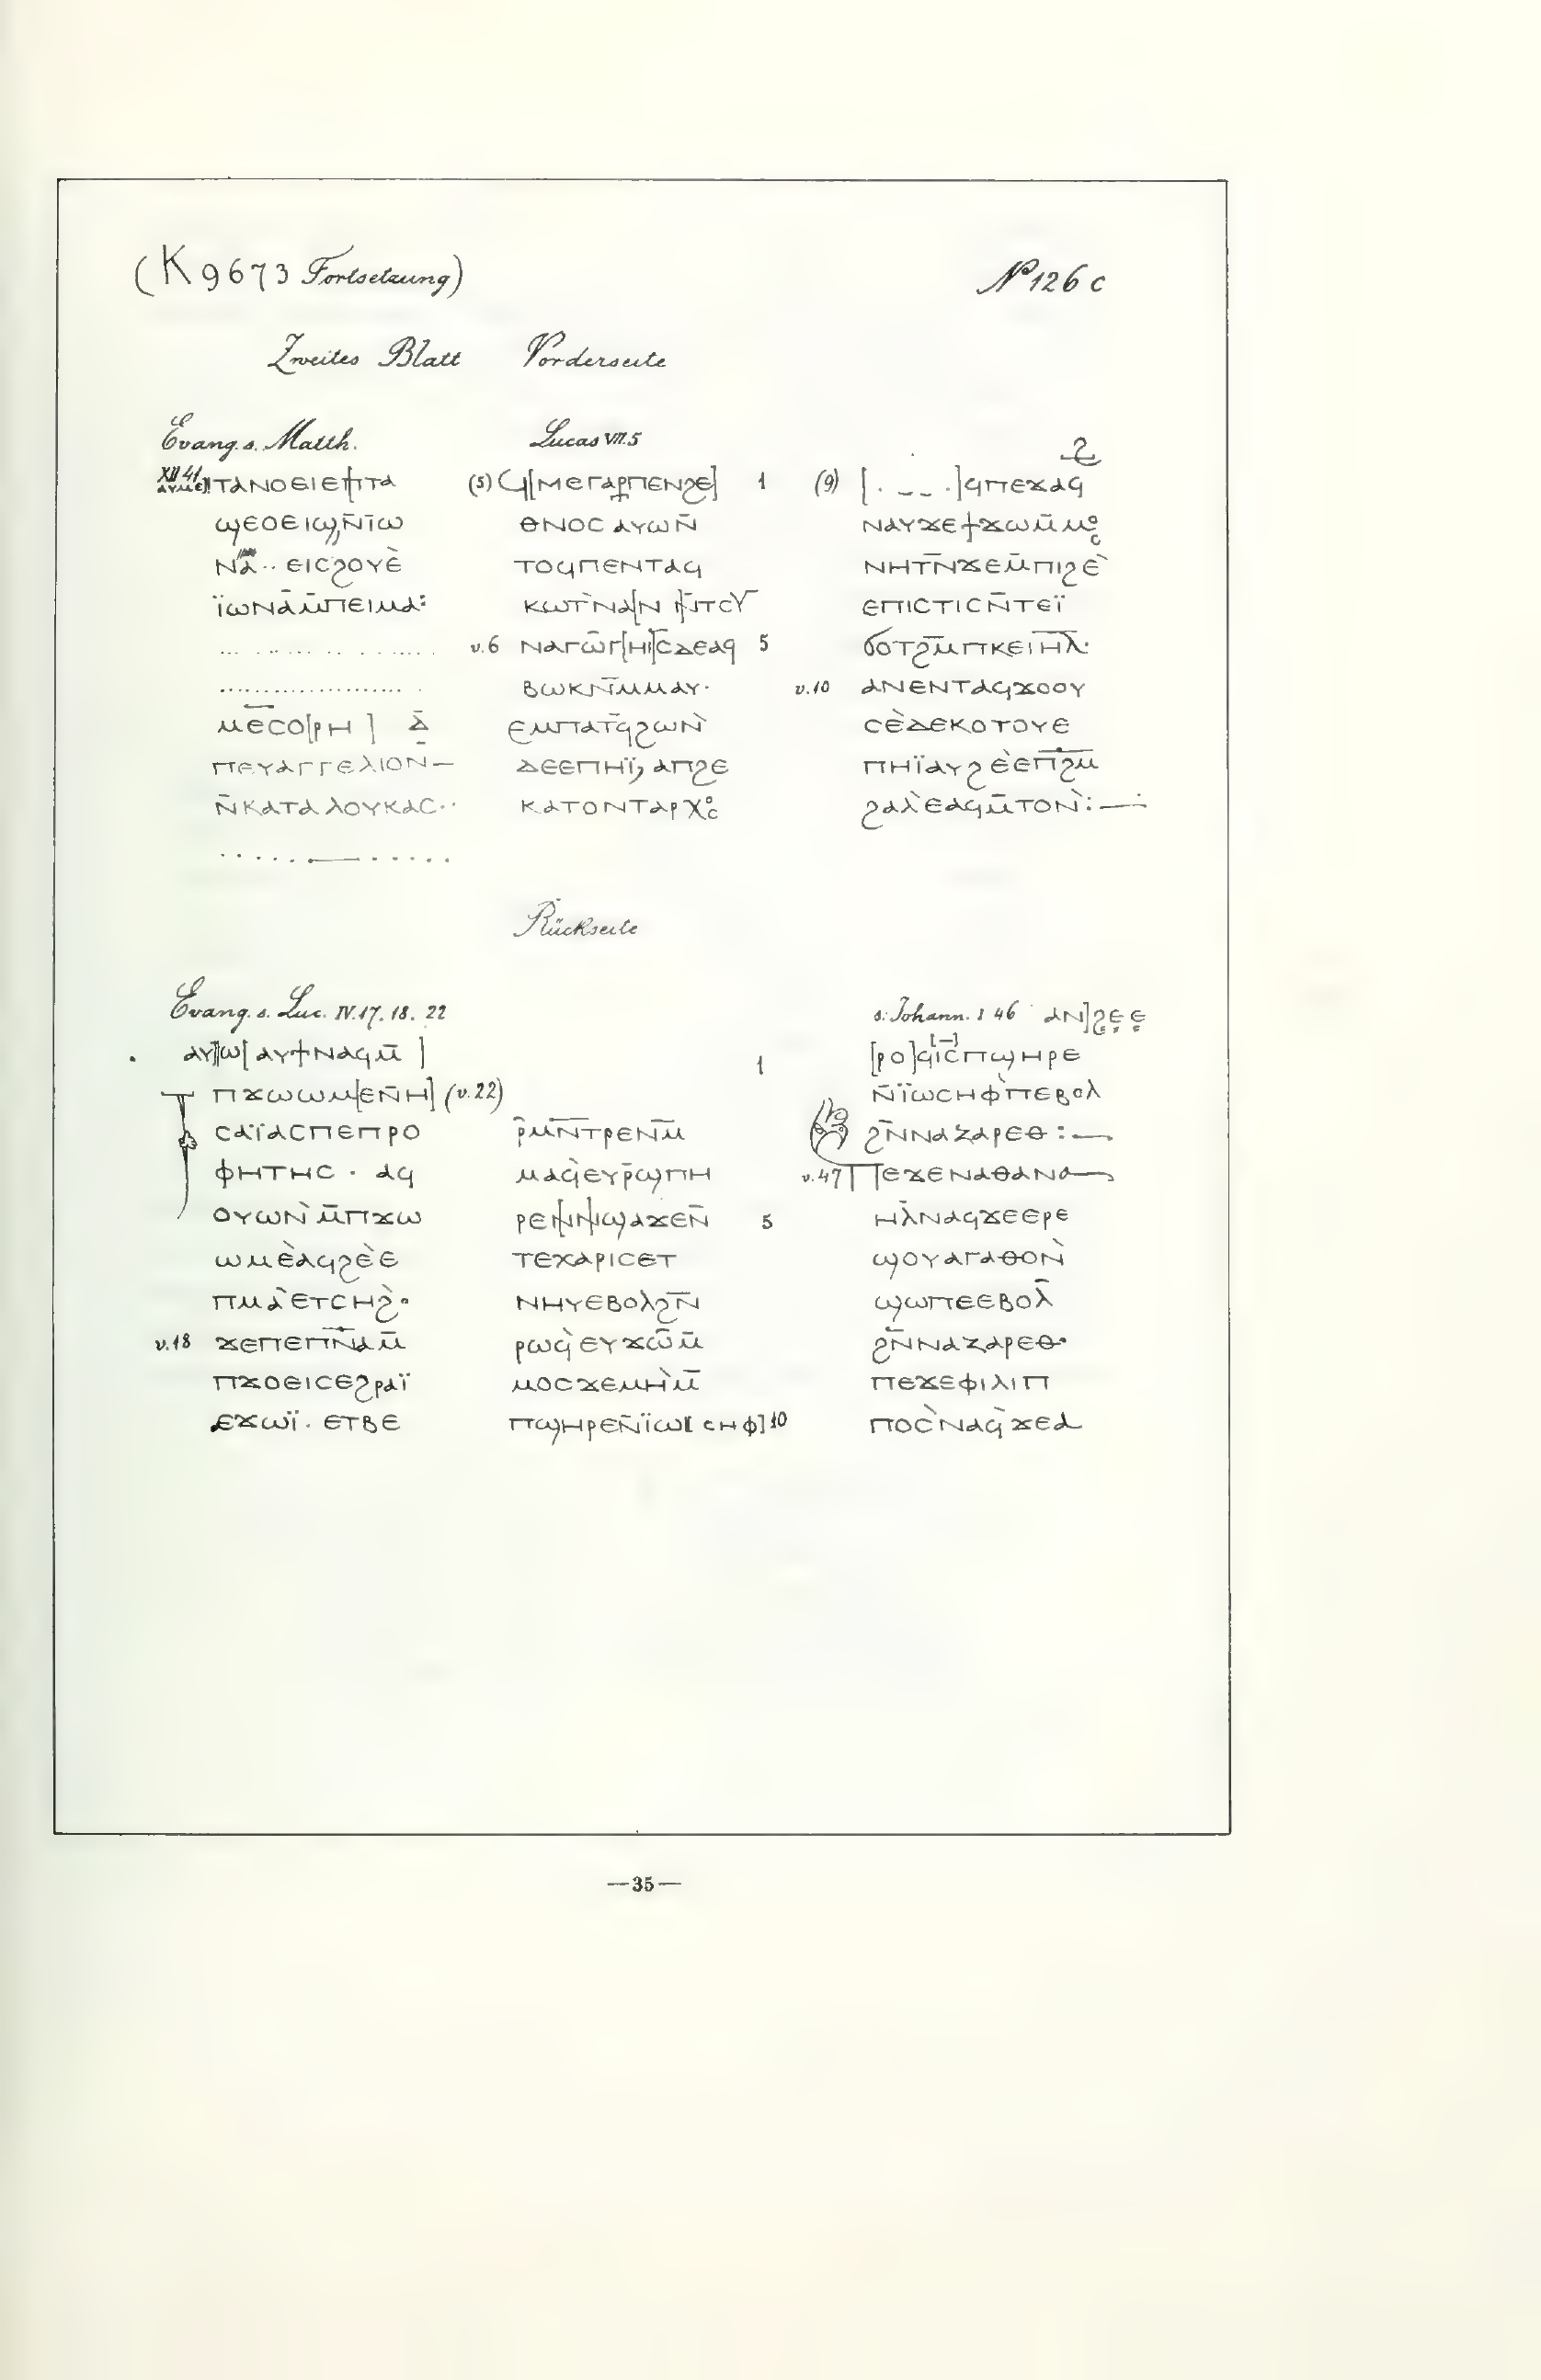 (K 9673 Fortsetzung)
№ 126 c
Zweites Blatt Vorderseite
Evang. s. Matth.
XII 41
ⲁⲩⲙⲉ]ⲧⲁⲛⲟⲉⲓⲉ[ⲡⲧⲁ
ϣⲉⲟⲉⲓϣⲛ̄ⲓ̄ⲱ
ⲛⲁ̄·· ⲉⲓⲥϩⲟⲩⲉ̀
ⲓ̈ⲱⲛⲁ̄ⲙ̄ⲡⲉⲓⲙⲁ:
... .. ... .. . .....
.................... .
ⲙⲉ̄ⲥⲟ[ⲣⲏ ] ⲇ̄
ⲡⲉⲩⲁⲅⲅⲉⲗⲓⲟⲛ̄—
ⲛ̄ⲕⲁⲧⲁ ⲗⲟⲩⲕⲁⲥ··
· · · · · . —— · · · · · ·
Lucas VII.5
(5) ϥ[ⲙⲉⲅⲁⲣⲡⲉⲛϩⲉ] 1
ⲑⲛⲟⲥ ⲁⲩⲱⲛ̄
ⲧⲟϥⲡⲉⲛⲧⲁϥ
ⲕⲱⲧ̀ⲛⲁ[ⲛ ⲛ̄ⲧⲥⲩ
v.6 ⲛⲁⲅⲱ̄ⲅ[ⲏ]ⲓ̄ⲥ̄ⲇⲉⲁϥ 5
ⲃⲱⲕⲛⲙ̄ⲙⲁⲩ·
ⲉⲙⲡⲁⲧϥ̄ϩⲱⲛ̀
ⲇⲉⲉⲡⲏⲓ̈, ⲁⲡϩⲉ
ⲕⲁⲧⲟⲛⲧⲁⲣⲭⲟⲥ
ϩ
(9) [. _ _ .]ϥⲡⲉϫⲁϥ
ⲛⲁⲩϫⲉϯϫⲱⲙ̄ⲙⲟⲥ
ⲛⲏⲧⲛ̄ϫⲉⲙ̄ⲡⲓϩⲉ̀
ⲉⲡⲓⲥⲧⲓⲥⲛ̄ⲧⲉⲓ̈
ϭⲟⲧϩⲙ̄ⲡⲕⲉⲓ̄ⲏ̄ⲗ̄·
v.10 ⲁⲛⲉⲛⲧⲁϥϫⲟⲟⲩ
ⲥⲉ̀ⲇⲉⲕⲟⲧⲟⲩⲉ
ⲡⲏⲓ̈ⲁⲩϩⲉ̀ⲉⲡϩ̄ⲙ̄
ϩⲁⲗ̀ⲉⲁϥⲙ̄ⲧⲟⲛ̀:—
Rückseite
Evang. s. Luc. IV.17. 18. 22
ⲁⲩ]ⲱ[ⲁⲩϯⲛⲁϥⲙ̄ ]
ⲡϫⲱⲱⲙ[ⲉⲛ̄ⲏ] (v.22)
ⲥⲁⲓ̈ⲁⲥⲡⲉⲡⲣⲟ
ⲫⲏⲧⲏⲥ · ⲁϥ
ⲟⲩⲱⲛ̀ⲙ̄ⲡϫⲱ
ⲱⲙⲉ̀ⲁϥϩⲉ̀ⲉ
ⲡⲙⲁ̀ⲉⲧⲥⲏϩ̀·
v.18 ϫⲉⲡⲉⲡⲛ̄ⲁⲙ̄
ⲡϫⲟⲉⲓⲥⲉϩⲣⲁⲓ̈
ⲉϫⲱⲓ̈· ⲉⲧⲃⲉ
ⲣ̄ⲙⲛ̄ⲧⲣⲉⲛ̄ⲙ̄
ⲙⲁϥ̀ⲉⲩⲣ̄ϣⲡⲏ
ⲣⲉ[ⲛ]ⲛ̄ϣⲁϫⲉⲛ̄ 5
ⲧⲉⲭⲁⲣⲓⲥⲉⲧ
ⲛⲏⲩⲉⲃⲟⲗϩⲛ̄
ⲣⲱϥ̀ⲉⲩϫⲱ̄ⲙ̄
ⲙⲟⲥϫⲉⲙⲏ̀ⲙ̄
ⲡϣⲏⲣⲉⲛ̄ⲓ̈ⲱ[ ⲥⲏⲫ] 10
s. Johann. I 46 ⲁⲛ]ϩⲉ ⲉ
1 [ⲣⲟ]ϥⲓ̄ⲥ̄ⲡϣⲏⲣⲉ
ⲛ̄ⲓ̈ⲱⲥⲏⲫ̀ⲡⲉⲃⲟⲗ
ϩⲛ̄ⲛⲁⲍⲁⲣⲉⲑ :—
v.47 ⲡⲉϫⲉⲛⲁⲑⲁⲛⲁ—
ⲏⲗ̀ⲛⲁϥϫⲉⲉⲣⲉ
ϣⲟⲩⲁⲅⲁⲑⲟⲛ̀
ϣⲱⲡⲉⲉⲃⲟⲗ̄
ϩⲛ̄ⲛⲁⲍⲁⲣⲉⲑ·
ⲡⲉϫⲉⲫⲓⲗⲓⲡ
ⲡⲟⲥ̀ⲛⲁϥ̀ϫⲉⲁ
—35—